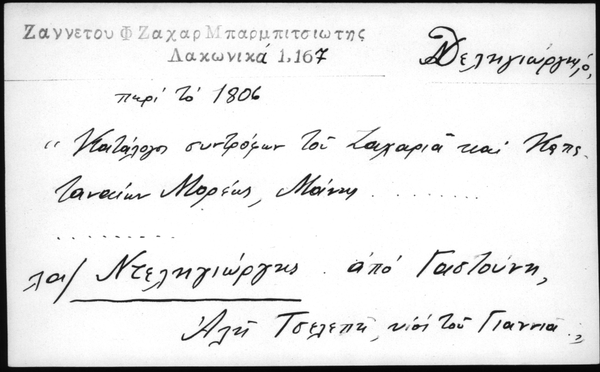 Ζαννετου Φ Ζαχαρ Μπαρμπιτσιωτης
Λακωνικά 1,167
Δεληγιώργης,
περί τό 1806
" Κατάλογοι συντρόφων τοῦ Ζαχαριᾶ καί Καπε
ταναίων Μορέως, Μάνης . . . . . . . .
. . . . . . . . . .
λα/ Ντεληγιώργης . ἀπό Γαστούνη,
Ἀλῆ Τσελεπῆ, υἱοί τοῦ Γιαννιᾶ . "